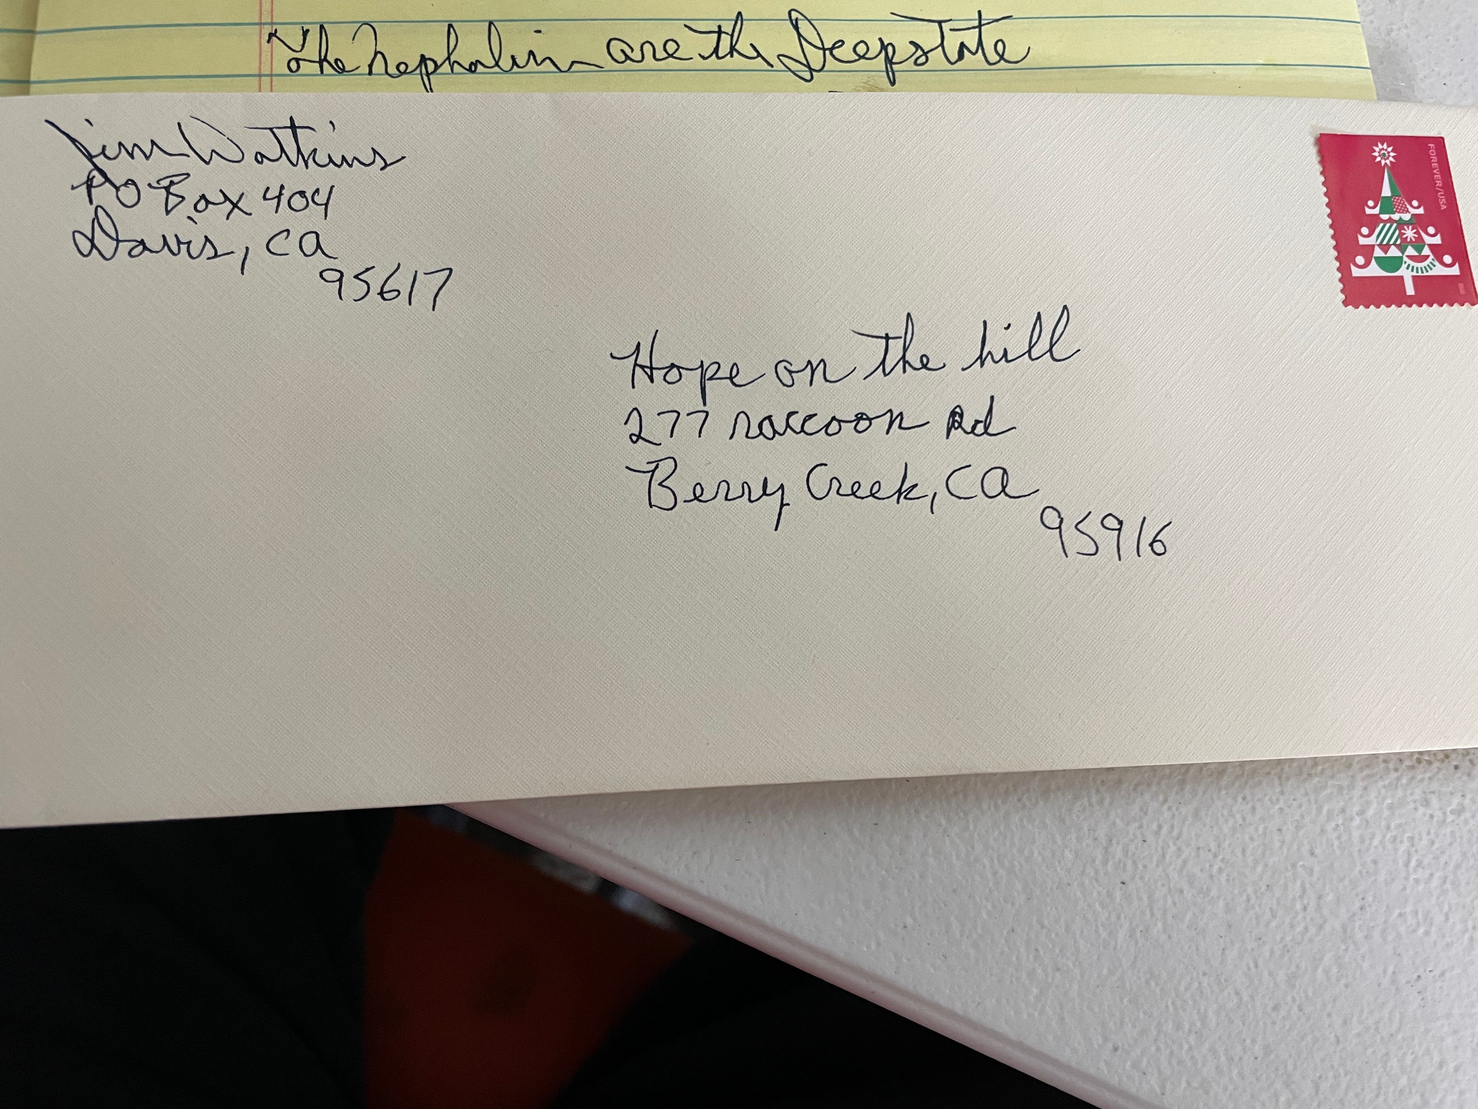 The Nephalim are the Deepstate
Jim Watkins
PO Box 404
Davis, CA
95617
FOREVER/USA
Hope on the hill
277 raccoon Rd
Berry Creek, CA
95916